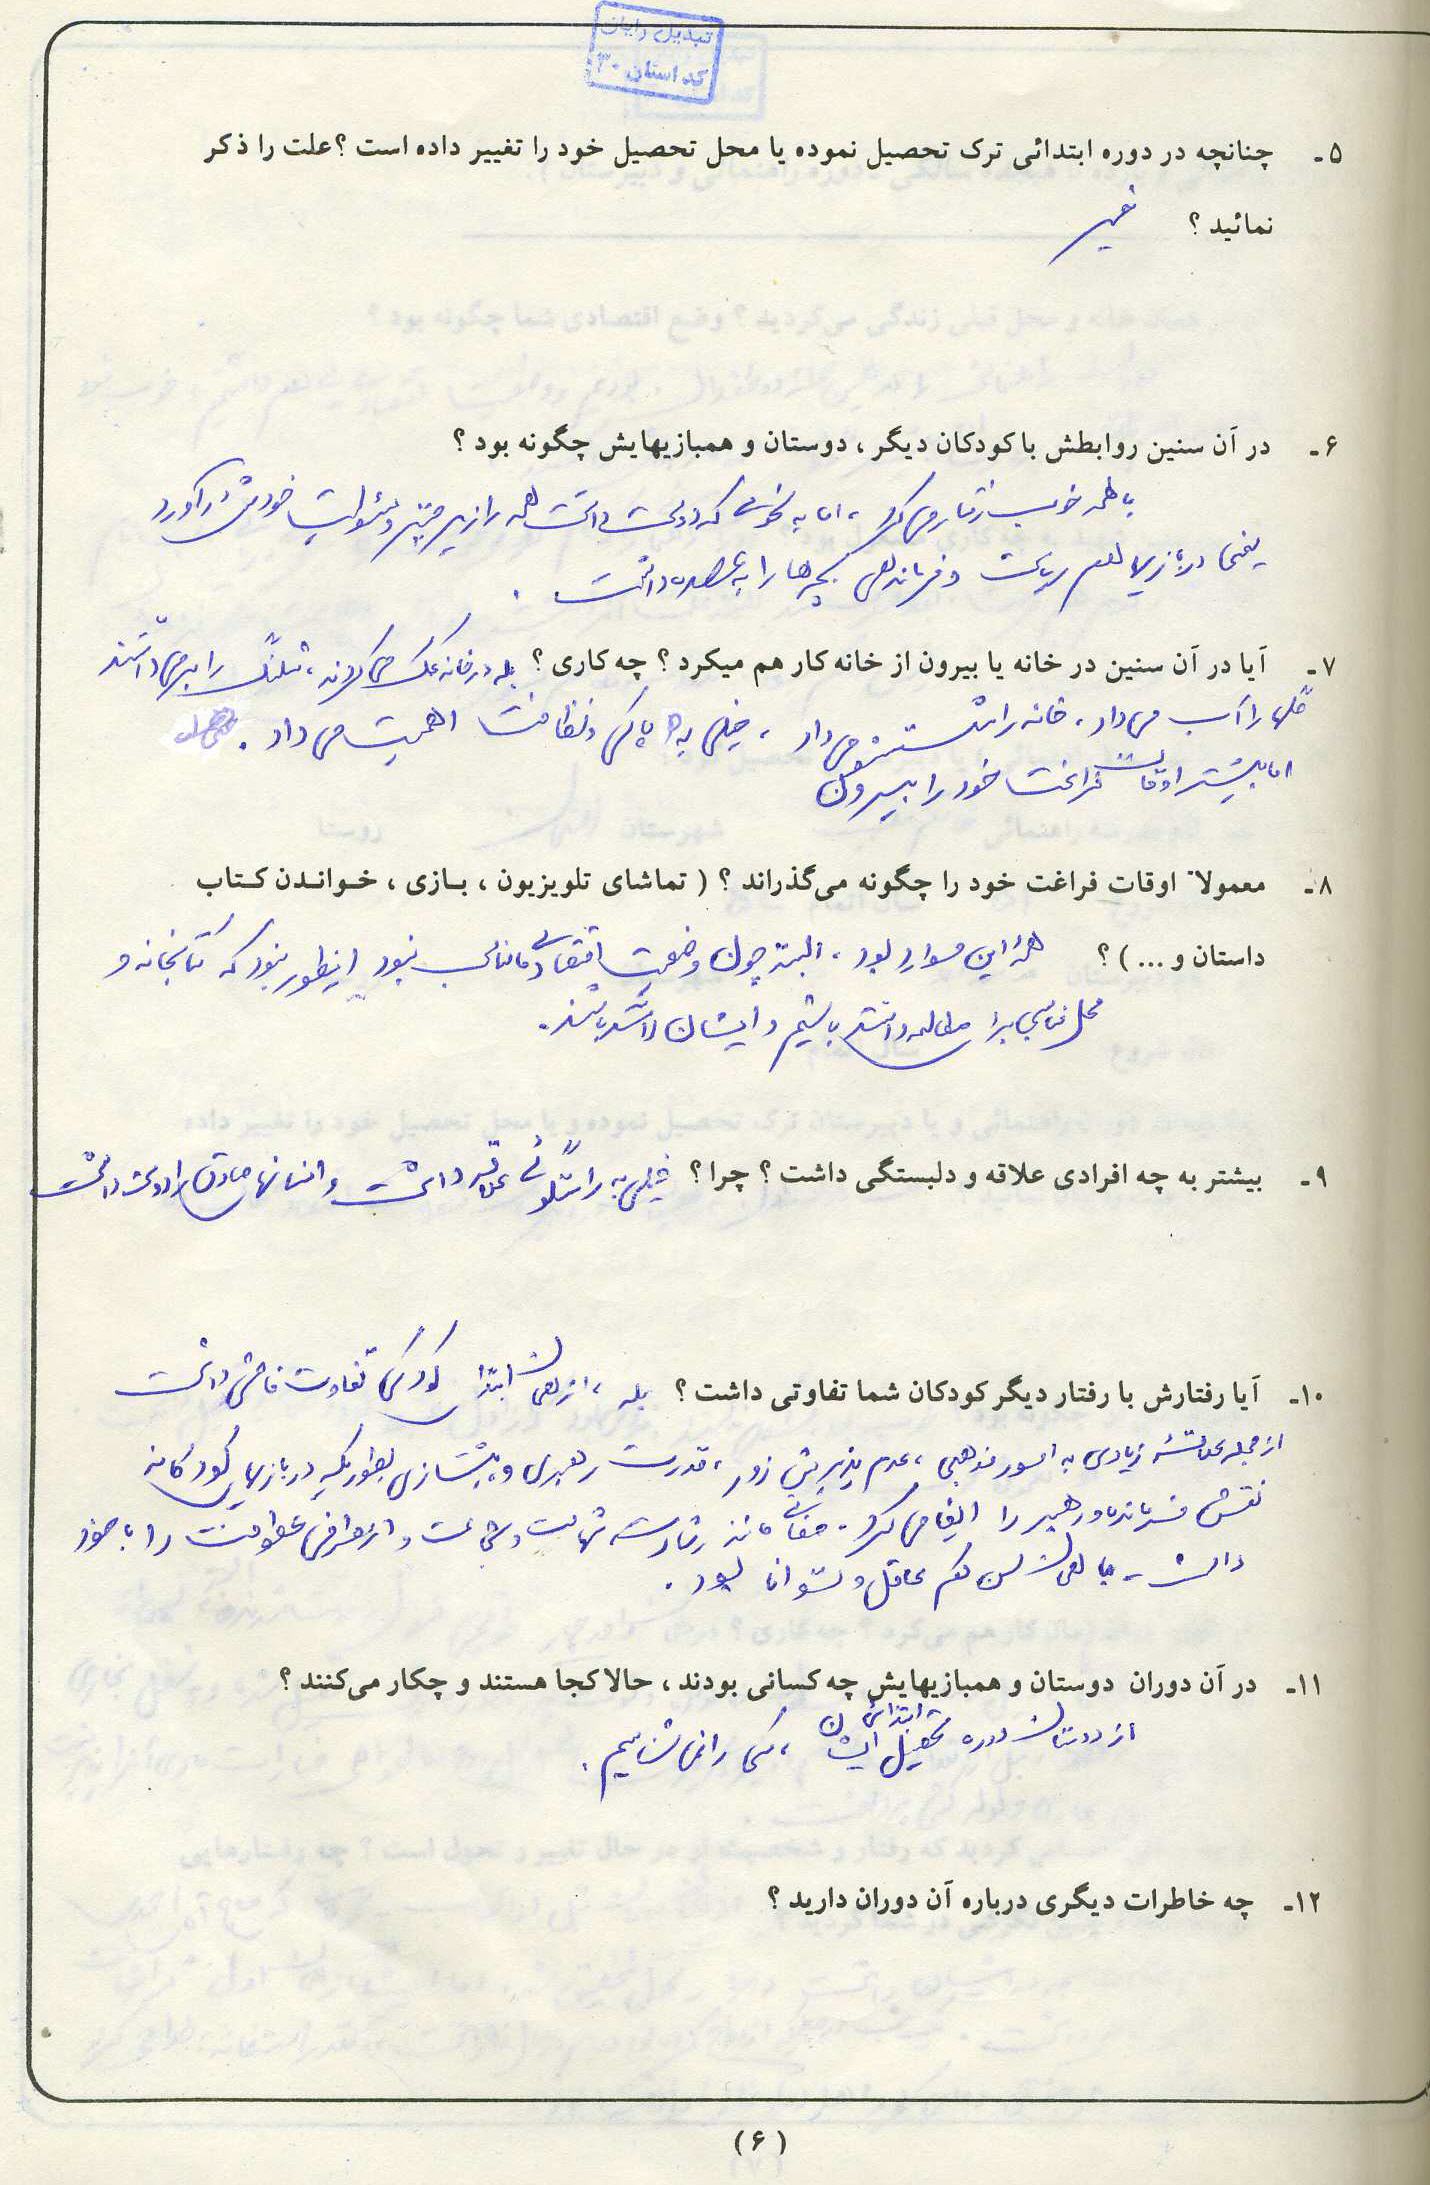 تبدیل رایان
کد استان ۳۰
۵- چنانچه در دوره ابتدائی ترک تحصیل نموده یا محل تحصیل خود را تغییر داده است ؟ علت را ذکر
نمائید ؟ خیر
۶- در آن سنین روابطش با کودکان دیگر ، دوستان و همبازیهایش چگونه بود ؟
با همه خوب رفتار می کرد ، اما به نحوی که دوست داشت همه را زیر چتر مسئولیت خودش درآورد
یعنی در بازیها هم ریاست و فرماندهی بچه ها را به عهده داشت .
۷- آیا در آن سنین در خانه یا بیرون از خانه کار هم میکرد ؟ چه کاری ؟ بله در خانه کمک می کردند ، شلنگ را برمی داشتند
گلها را آب می داد ، خانه را شستشو می داد ، خیلی به پاکی و نظافت اهمیت می داد .
اما بیشتر اوقات فراغت خود را بیرون
۸- معمولاً اوقات فراغت خود را چگونه می‌گذراند ؟ ( تماشای تلویزیون ، بازی ، خواندن کتاب
داستان و ... ) ؟ همه این موارد بود ، البته چون وضعیت اقتصادی مناسب نبود اینطور نبود که کتابخانه و
محل مناسبی برای مطالعه داشته باشیم و ایشان داشته باشند .
۹- بیشتر به چه افرادی علاقه و دلبستگی داشت ؟ چرا ؟ خیلی به راستگوئی علاقه داشت و انسانهای صادق را دوست داشت
۱۰- آیا رفتارش با رفتار دیگر کودکان شما تفاوتی داشت ؟ بله ، از همان ابتدای کودکی تفاوت فاحشی داشت
از جمله علاقه زیادی به امور مذهبی ، عدم پذیرش زور ، قدرت رهبری و پیشتازی بطوریکه در بازیهای کودکانه
نقش فرمانده و رهبر را ایفا می کرد . صفاتی مانند شهامت و شجاعت و از طرفی عطوفت را با خود
داشت . با همان سن کم عاقل و توانا بود .
۱۱- در آن دوران دوستان و همبازیهایش چه کسانی بودند ، حالا کجا هستند و چکار می‌کنند ؟
از دوستان دوره تحصیل ابتدائی ایشان ، کسی را نمی شناسیم .
۱۲- چه خاطرات دیگری درباره آن دوران دارید ؟
( ۶ )